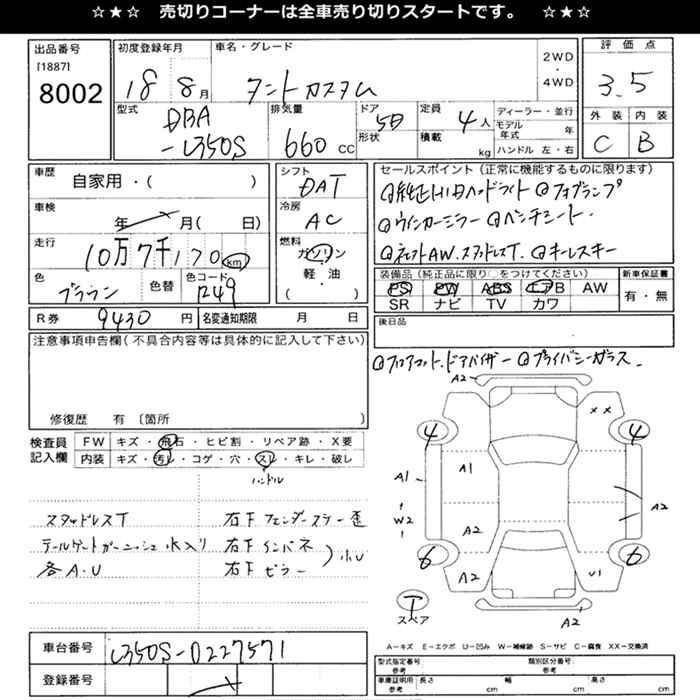 ☆★☆　売切りコーナーは全車売り切りスタートです。　☆★☆
出品番号 初度登録年月 車名・グレード 2WD ・ 4WD 評価点
[1887]
8002 18 8月 タントカスタム 3.5
型式 排気量 ドア 定員 ディーラー・並行 外装 内装
DBA 5D 4人 モデル年式 年
-L350S 660cc 形状 積載 kg ハンドル 左・右 C B
車歴 自家用・( ) シフト DAT セールスポイント（正常に機能するものに限ります）
車検 年 月(日) 冷房 AC ◎純正HIDヘッドライト ◎フォグランプ
◎ウインカーミラー ◎ベンチシート
走行 10万7千170km 燃料 ガソリン ◎AW.スタッドレスT. ◎キーレスキー
軽油
( )
色 ブラウン 色替 色コード R49 装備品（純正品に限り○をつけてください） 新車保証書
PS PW ABS エアB AW 有・無
SR ナビ TV カワ
R券 9430円 名変通知期限 月 日 後日品
注意事項申告欄（不具合内容等は具体的に記入して下さい） ◎フロアマット.ドアバイザー ◎プライバシーガラス
修復歴 有〔箇所 〕
検査員記入欄 FW キズ・飛石・ヒビ割・リペア跡・X要
内装 キズ・汚レ・コゲ・穴・スレ・キレ・破レ
ハンドル
A2
XX
4 4
A1 A1
W2 A2
A2
6 6
A2 U1
T
スペア
A2
スタッドレスT 右F フェンダーステー歪
テールゲートガーニッシュ水入り 右F インパネ
各A・U 右F ピラー 小U
A－キズ E－エクボ U－凹み W－補修跡 S－サビ C－腐食 XX－交換済
車台番号 L350S-0227571
型式指定番号 類別区分番号
参考 参考
登録番号 車庫証明用 長さ 幅 高さ
参考 cm cm cm